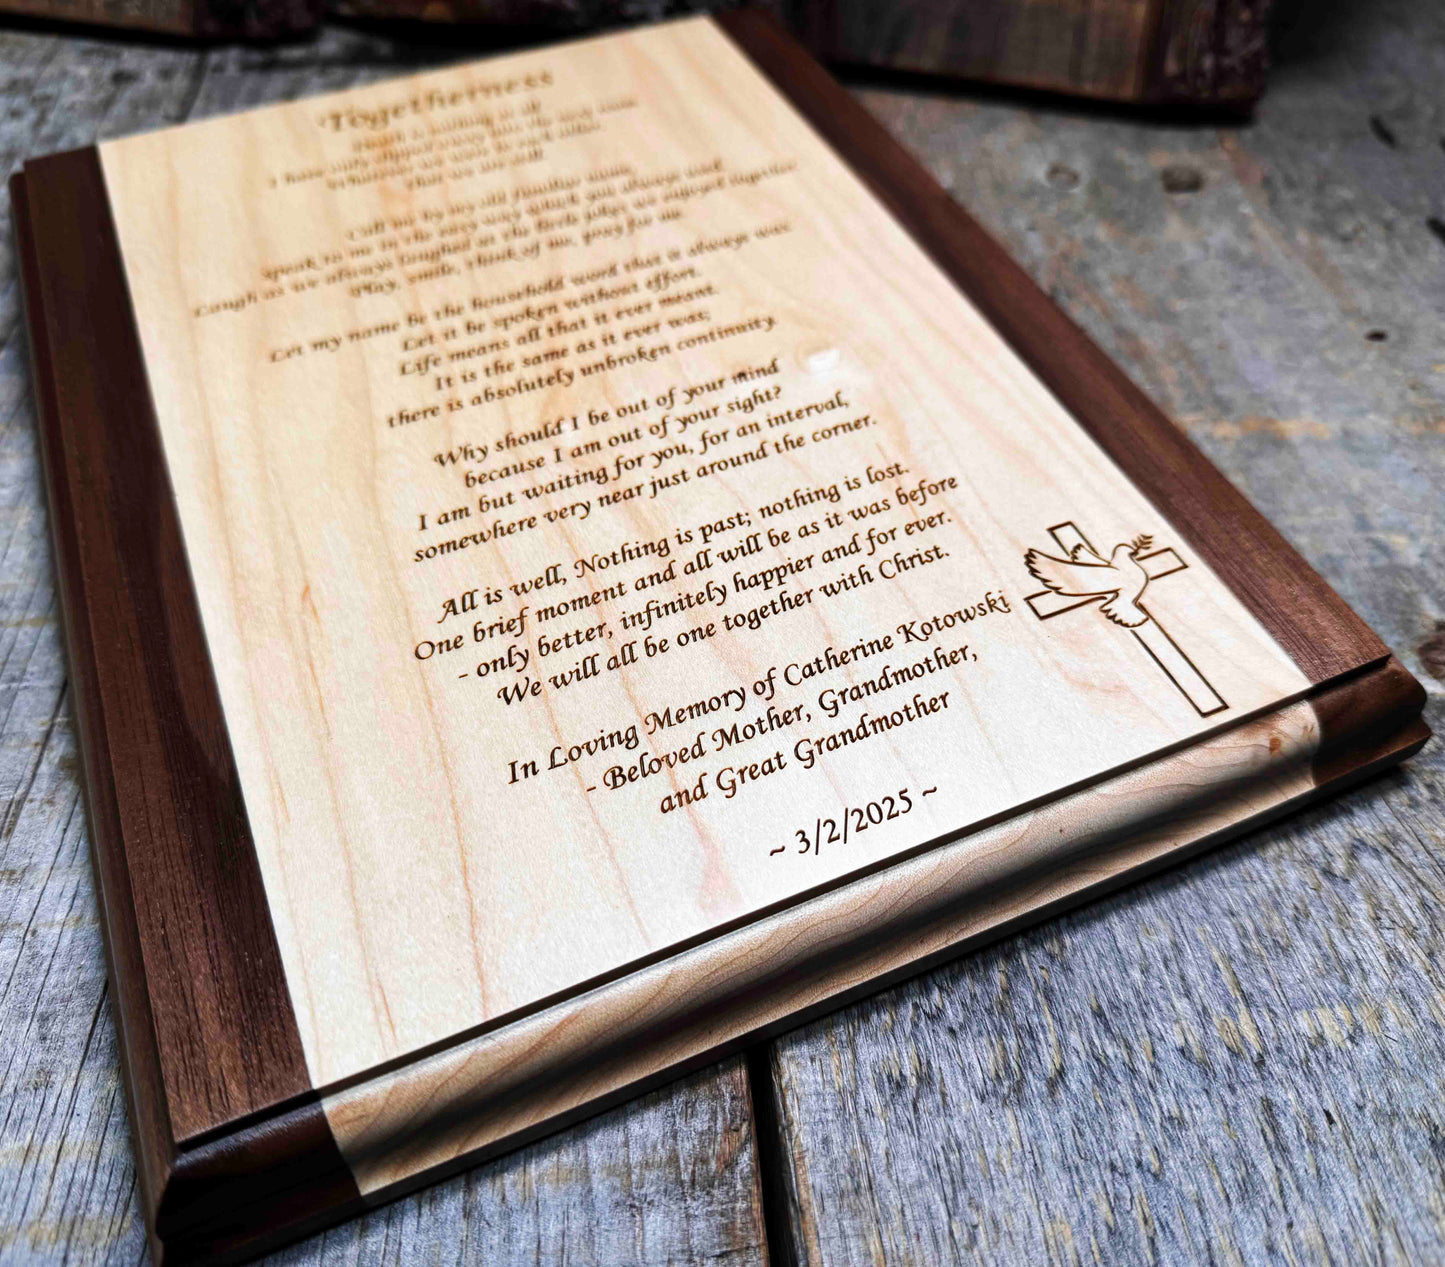 Togetherness
Death is nothing at all
I have only slipped away into the next room
Whatever we were to each other
That we are still
Call me by my old familiar name
Speak to me in the easy way which you always used
Laugh as we always laughed at the little jokes we enjoyed together
Play, smile, think of me, pray for me
Let my name be the household word that it always was
Let it be spoken without effort.
Life means all that it ever meant.
It is the same as it ever was;
there is absolutely unbroken continuity.
Why should I be out of your mind
because I am out of your sight?
I am but waiting for you, for an interval,
somewhere very near just around the corner.
All is well, Nothing is past; nothing is lost.
One brief moment and all will be as it was before
- only better, infinitely happier and for ever.
We will all be one together with Christ.
In Loving Memory of Catherine Kotowski
- Beloved Mother, Grandmother,
and Great Grandmother
~ 3/2/2025 ~